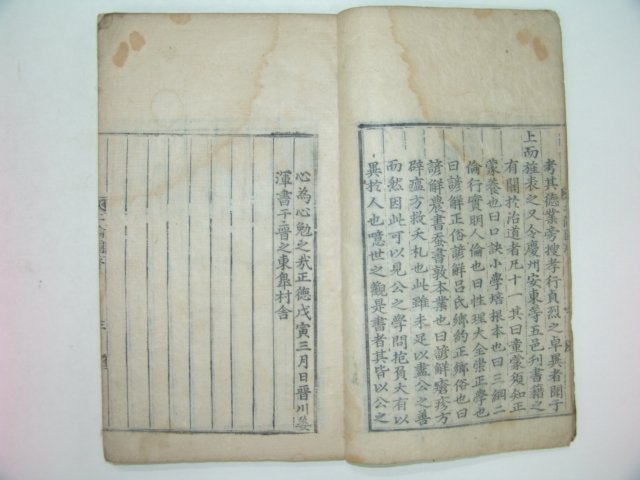 考其德業旁搜孝行貞烈之卓異者聞于
上而旌表之又令慶州安東等五邑刊書籍之
有關於治道者凡十一其曰童蒙須知正
蒙養也曰口訣小學培根本也曰三綱二
倫行實明人倫也曰性理大全崇正學也
曰諺解正俗諺解呂氏鄉約正鄉俗也曰
諺解農書蚕書敦本業也曰諺解瘡疹方
辟瘟方救夭札也此雖未足以盡公之善
而然因此可以見公之學問抱負大有以
異於人也噫世之觀是書者其皆以公之
心為心勉之㢤正德戊寅三月日晉川姜
渾書于晉之東皐村舍